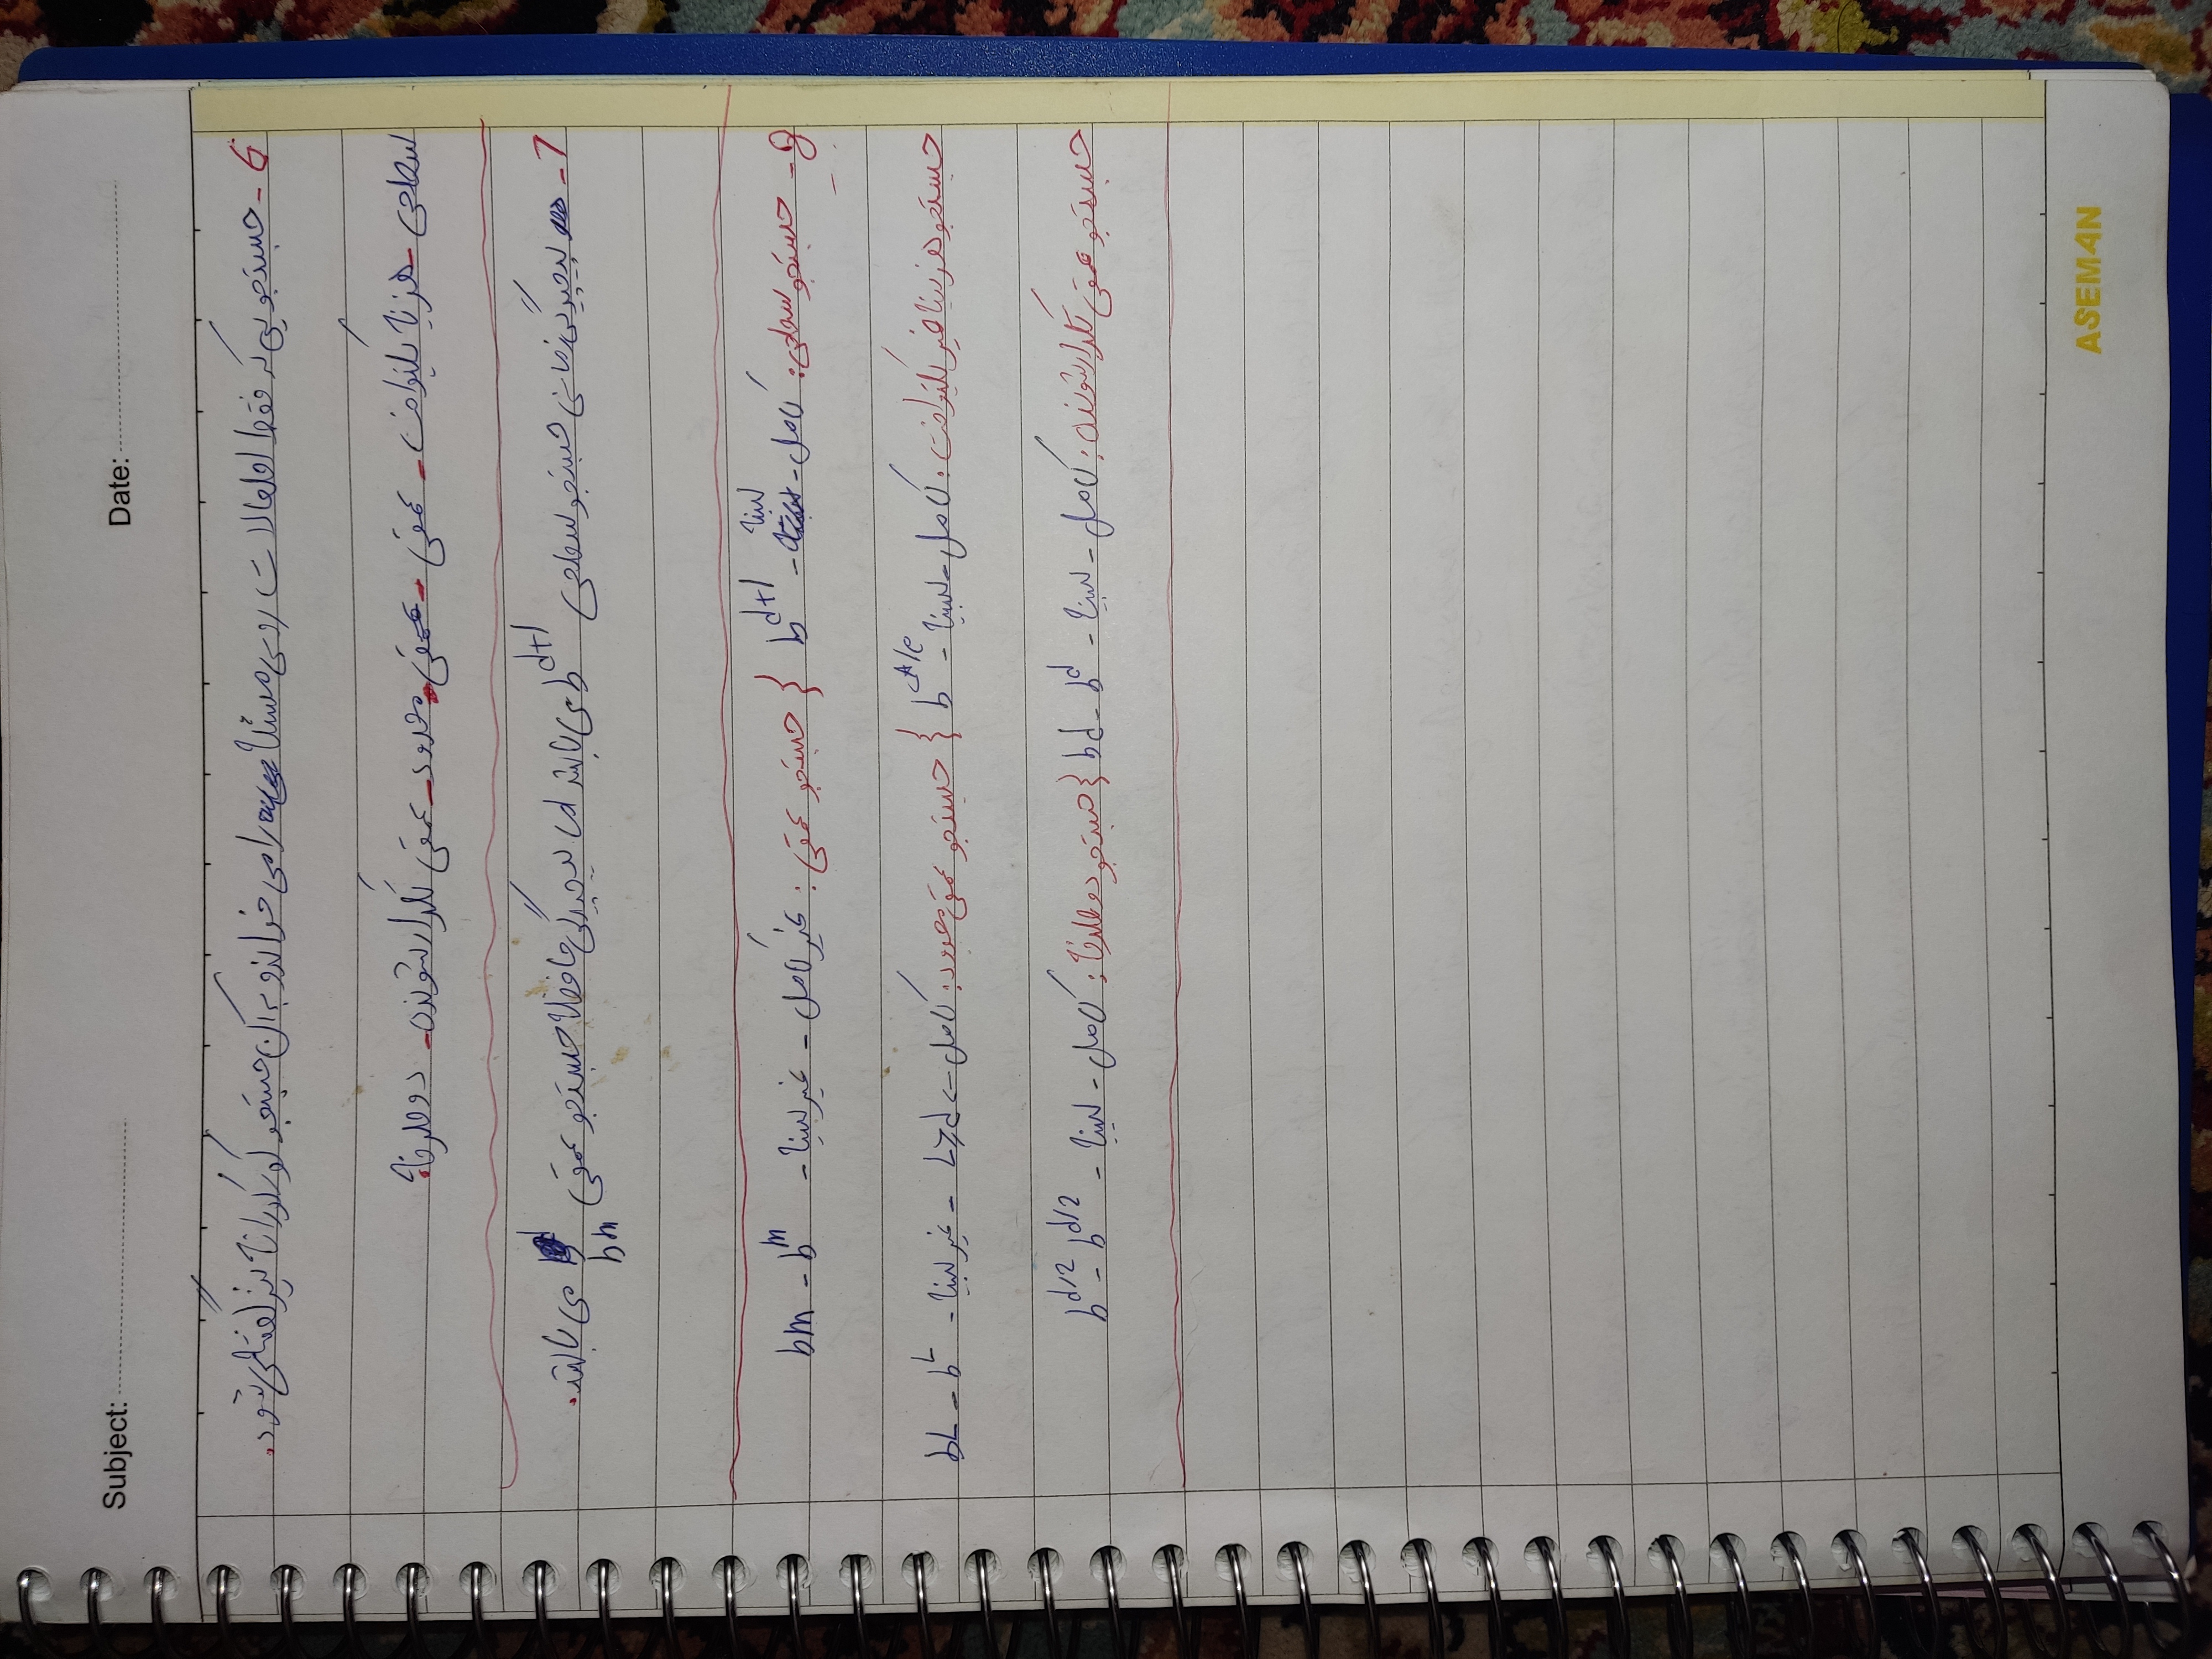 Subject:
Date:
6- جستجویی که فقط اطلاعات روی مسئله را می خواند و به آن جستجو کورکورانه نیز گفته می شود.
سطحی - هزینه یکنواخت - عمقی - عمقی محدود - عمقی تکرار شونده - دوطرفه
7- پیچیدگی زمانی جستجو سطحی b^d+1 می باشد اما پیچیدگی حافظه جستجو عمقی bm می باشد.
8- جستجو سطحی: کامل - بهینه - b^d+1 } جستجو عمقی: غیر کامل - غیر بهینه - b^m - bm
جستجو هزینه غیر یکنواخت: کامل - بهینه - b^c*/e } جستجو عمقی محدود: کامل ← L≥d - غیر بهینه - b^L - bL
جستجو عمقی تکرار شونده: کامل - بهینه - b^d - bd } جستجو دوطرفه: کامل - بهینه - b^d/2 - b^d/2
ASEMAN